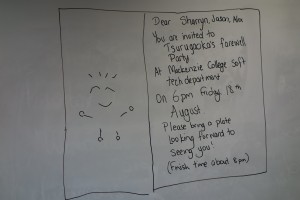 Dear Sharryn, Jason, Alex
You are invited to
Tsurugaoka's farewell
Party
At Mackenzie College Soft
tech department
On 6pm Friday 18th
August
Please bring a plate
looking forward to
seeing you!
(Finish time about 8pm)